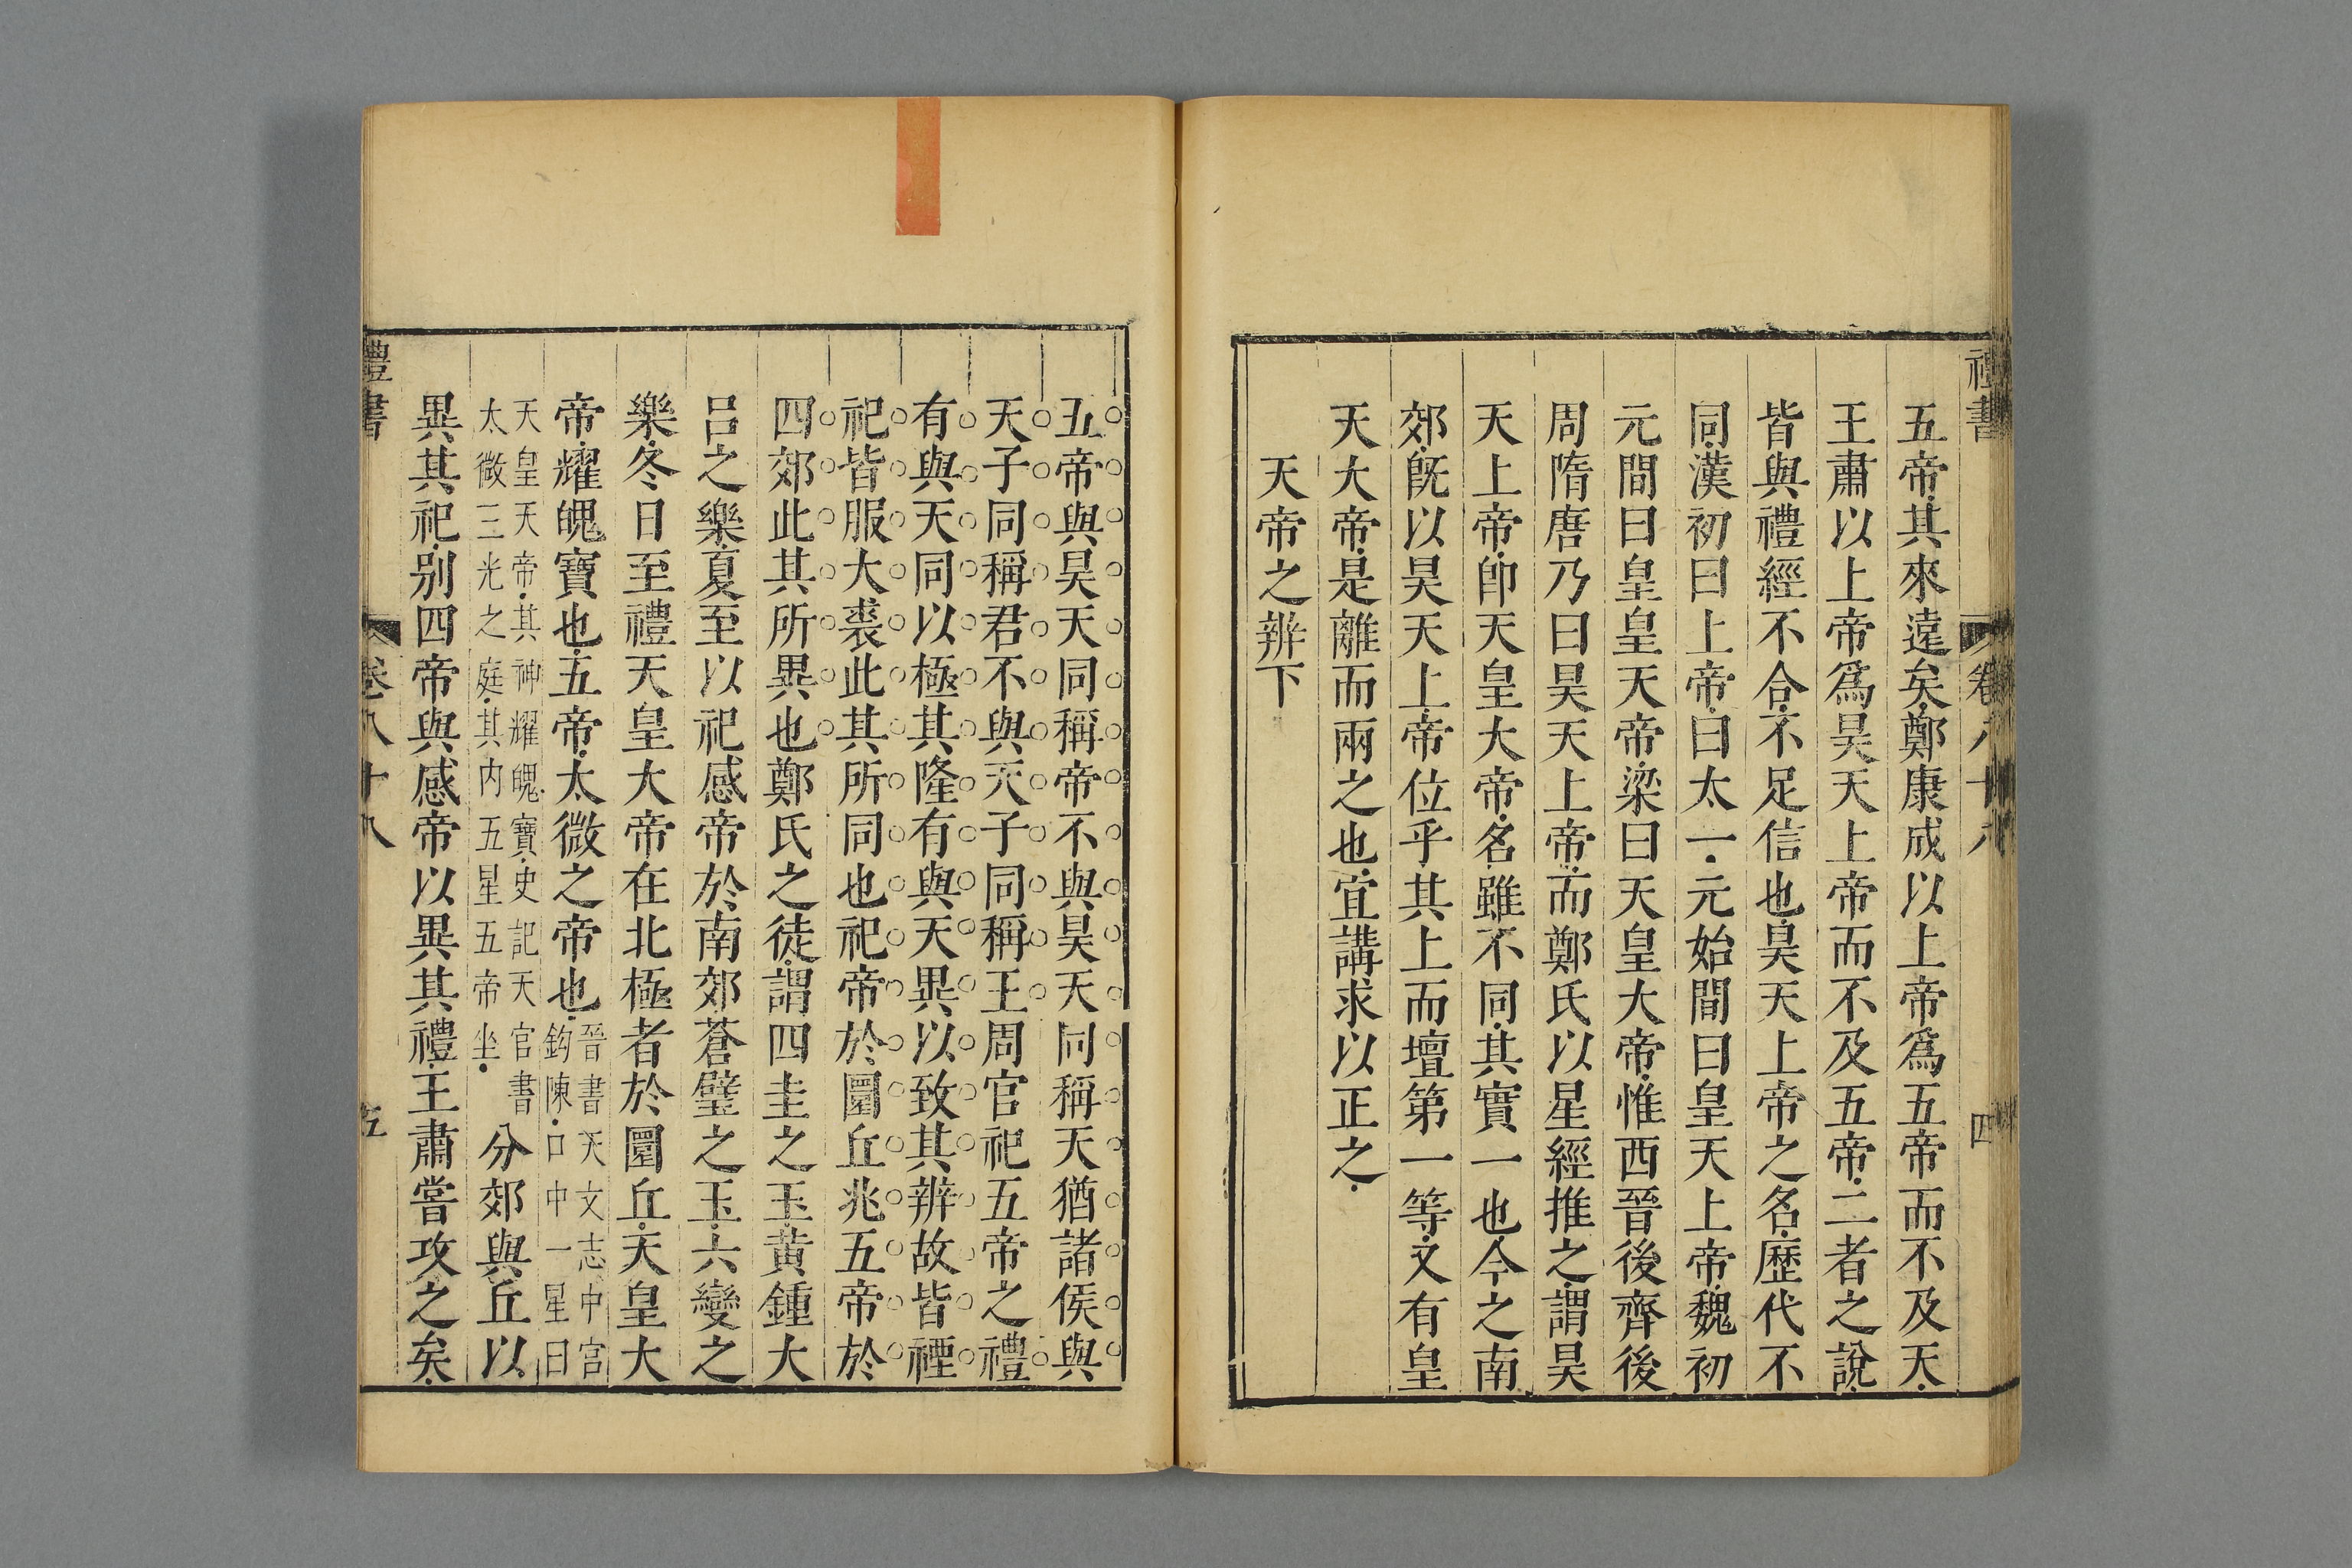 禮書
卷八十八
四
五帝其來遠矣鄭康成以上帝爲五帝而不及天
王肅以上帝爲昊天上帝而不及五帝二者之說
皆與禮經不合不足信也昊天上帝之名歷代不
同漢初曰上帝曰太一元始間曰皇天上帝魏初
元間曰皇皇天帝梁曰天皇大帝惟西晉後齊後
周隋唐乃曰昊天上帝而鄭氏以星經推之謂昊
天上帝卽天皇大帝名雖不同其實一也今之南
郊旣以昊天上帝位乎其上而壇第一等又有皇
天大帝是離而兩之也宜講求以正之
天帝之辨下
五帝與昊天同稱帝不與昊天同稱天猶諸侯與
天子同稱君不與天子同稱王周官祀五帝之禮
有與天同以極其隆有與天異以致其辨故皆禋
祀皆服大裘此其所同也祀帝於圜丘兆五帝於
四郊此其所異也鄭氏之徒謂四圭之玉黃鍾大
呂之樂夏至以祀感帝於南郊蒼璧之玉六變之
樂冬日至禮天皇大帝在北極者於圜丘天皇大
帝耀魄寶也五帝太微之帝也晉書天文志中宮鈎陳口中一星曰
天皇天帝其神耀魄寶史記天官書太微三光之庭其內五星五帝坐分郊與丘以
異其祀別四帝與感帝以異其禮王肅嘗攻之矣
禮書
卷八十八
五